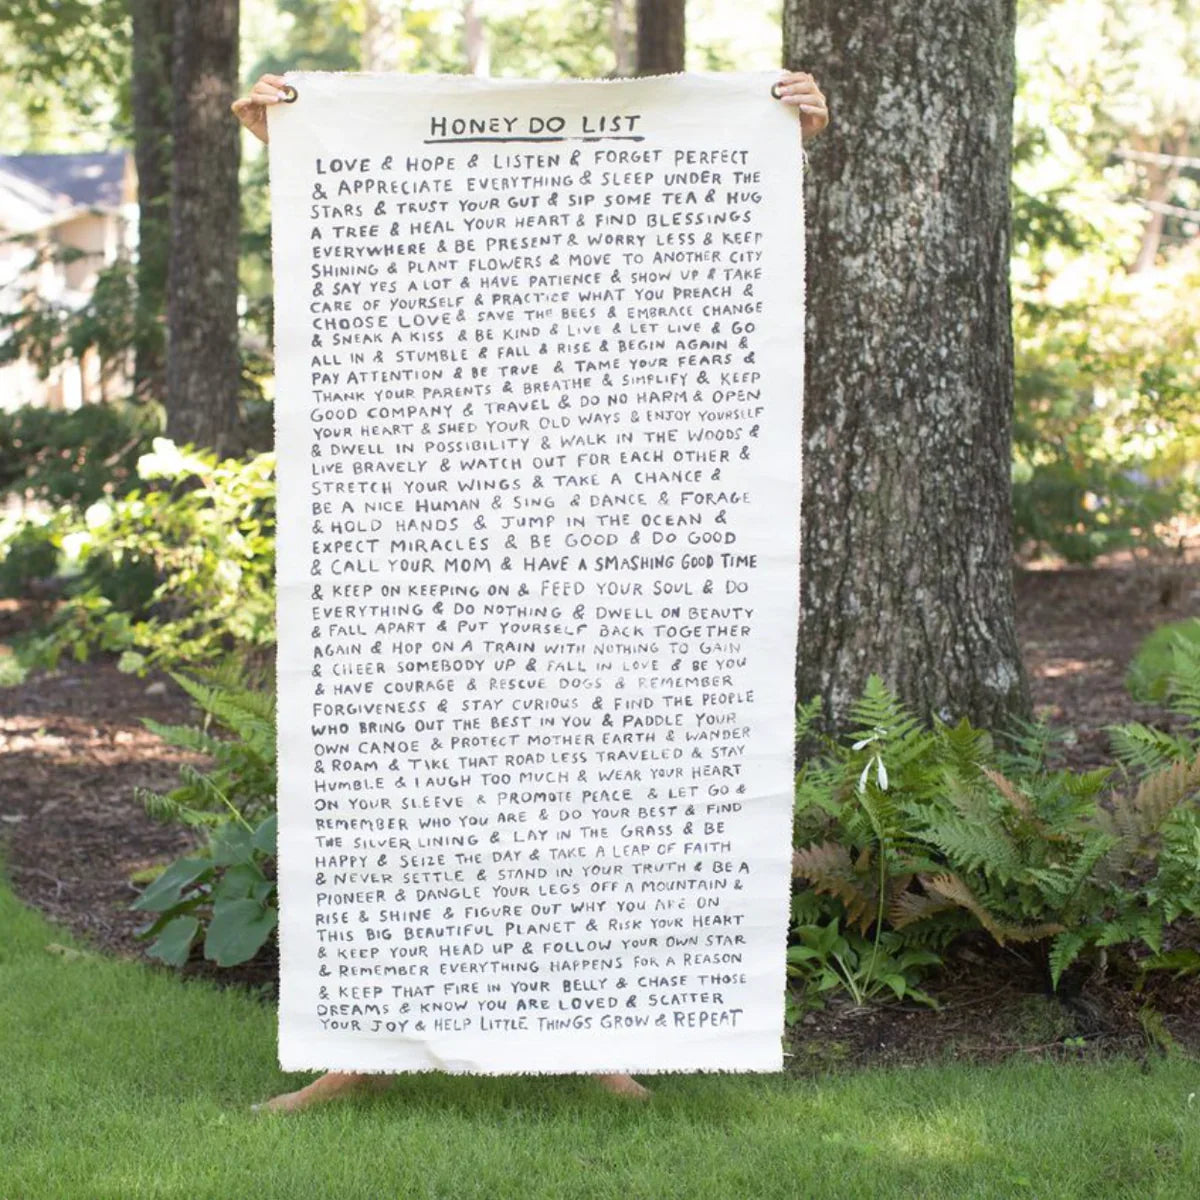 HONEY DO LIST
LOVE & HOPE & LISTEN & FORGET PERFECT
& APPRECIATE EVERYTHING & SLEEP UNDER THE
STARS & TRUST YOUR GUT & SIP SOME TEA & HUG
A TREE & HEAL YOUR HEART & FIND BLESSINGS
EVERYWHERE & BE PRESENT & WORRY LESS & KEEP
SHINING & PLANT FLOWERS & MOVE TO ANOTHER CITY
& SAY YES A LOT & HAVE PATIENCE & SHOW UP & TAKE
CARE OF YOURSELF & PRACTICE WHAT YOU PREACH &
CHOOSE LOVE & SAVE THE BEES & EMBRACE CHANGE
& SNEAK A KISS & BE KIND & LIVE & LET LIVE & GO
ALL IN & STUMBLE & FALL & RISE & BEGIN AGAIN &
PAY ATTENTION & BE TRUE & TAME YOUR FEARS &
THANK YOUR PARENTS & BREATHE & SIMPLIFY & KEEP
GOOD COMPANY & TRAVEL & DO NO HARM & OPEN
YOUR HEART & SHED YOUR OLD WAYS & ENJOY YOURSELF
& DWELL IN POSSIBILITY & WALK IN THE WOODS &
LIVE BRAVELY & WATCH OUT FOR EACH OTHER &
STRETCH YOUR WINGS & TAKE A CHANCE &
BE A NICE HUMAN & SING & DANCE & FORAGE
& HOLD HANDS & JUMP IN THE OCEAN &
EXPECT MIRACLES & BE GOOD & DO GOOD
& CALL YOUR MOM & HAVE A SMASHING GOOD TIME
& KEEP ON KEEPING ON & FEED YOUR SOUL & DO
EVERYTHING & DO NOTHING & DWELL ON BEAUTY
& FALL APART & PUT YOURSELF BACK TOGETHER
AGAIN & HOP ON A TRAIN WITH NOTHING TO GAIN
& CHEER SOMEBODY UP & FALL IN LOVE & BE YOU
& HAVE COURAGE & RESCUE DOGS & REMEMBER
FORGIVENESS & STAY CURIOUS & FIND THE PEOPLE
WHO BRING OUT THE BEST IN YOU & PADDLE YOUR
OWN CANOE & PROTECT MOTHER EARTH & WANDER
& ROAM & TAKE THAT ROAD LESS TRAVELED & STAY
HUMBLE & LAUGH TOO MUCH & WEAR YOUR HEART
ON YOUR SLEEVE & PROMOTE PEACE & LET GO &
REMEMBER WHO YOU ARE & DO YOUR BEST & FIND
THE SILVER LINING & LAY IN THE GRASS & BE
HAPPY & SEIZE THE DAY & TAKE A LEAP OF FAITH
& NEVER SETTLE & STAND IN YOUR TRUTH & BE A
PIONEER & DANGLE YOUR LEGS OFF A MOUNTAIN &
RISE & SHINE & FIGURE OUT WHY YOU ARE ON
THIS BIG BEAUTIFUL PLANET & RISK YOUR HEART
& KEEP YOUR HEAD UP & FOLLOW YOUR OWN STAR
& REMEMBER EVERYTHING HAPPENS FOR A REASON
& KEEP THAT FIRE IN YOUR BELLY & CHASE THOSE
DREAMS & KNOW YOU ARE LOVED & SCATTER
YOUR JOY & HELP LITTLE THINGS GROW & REPEAT